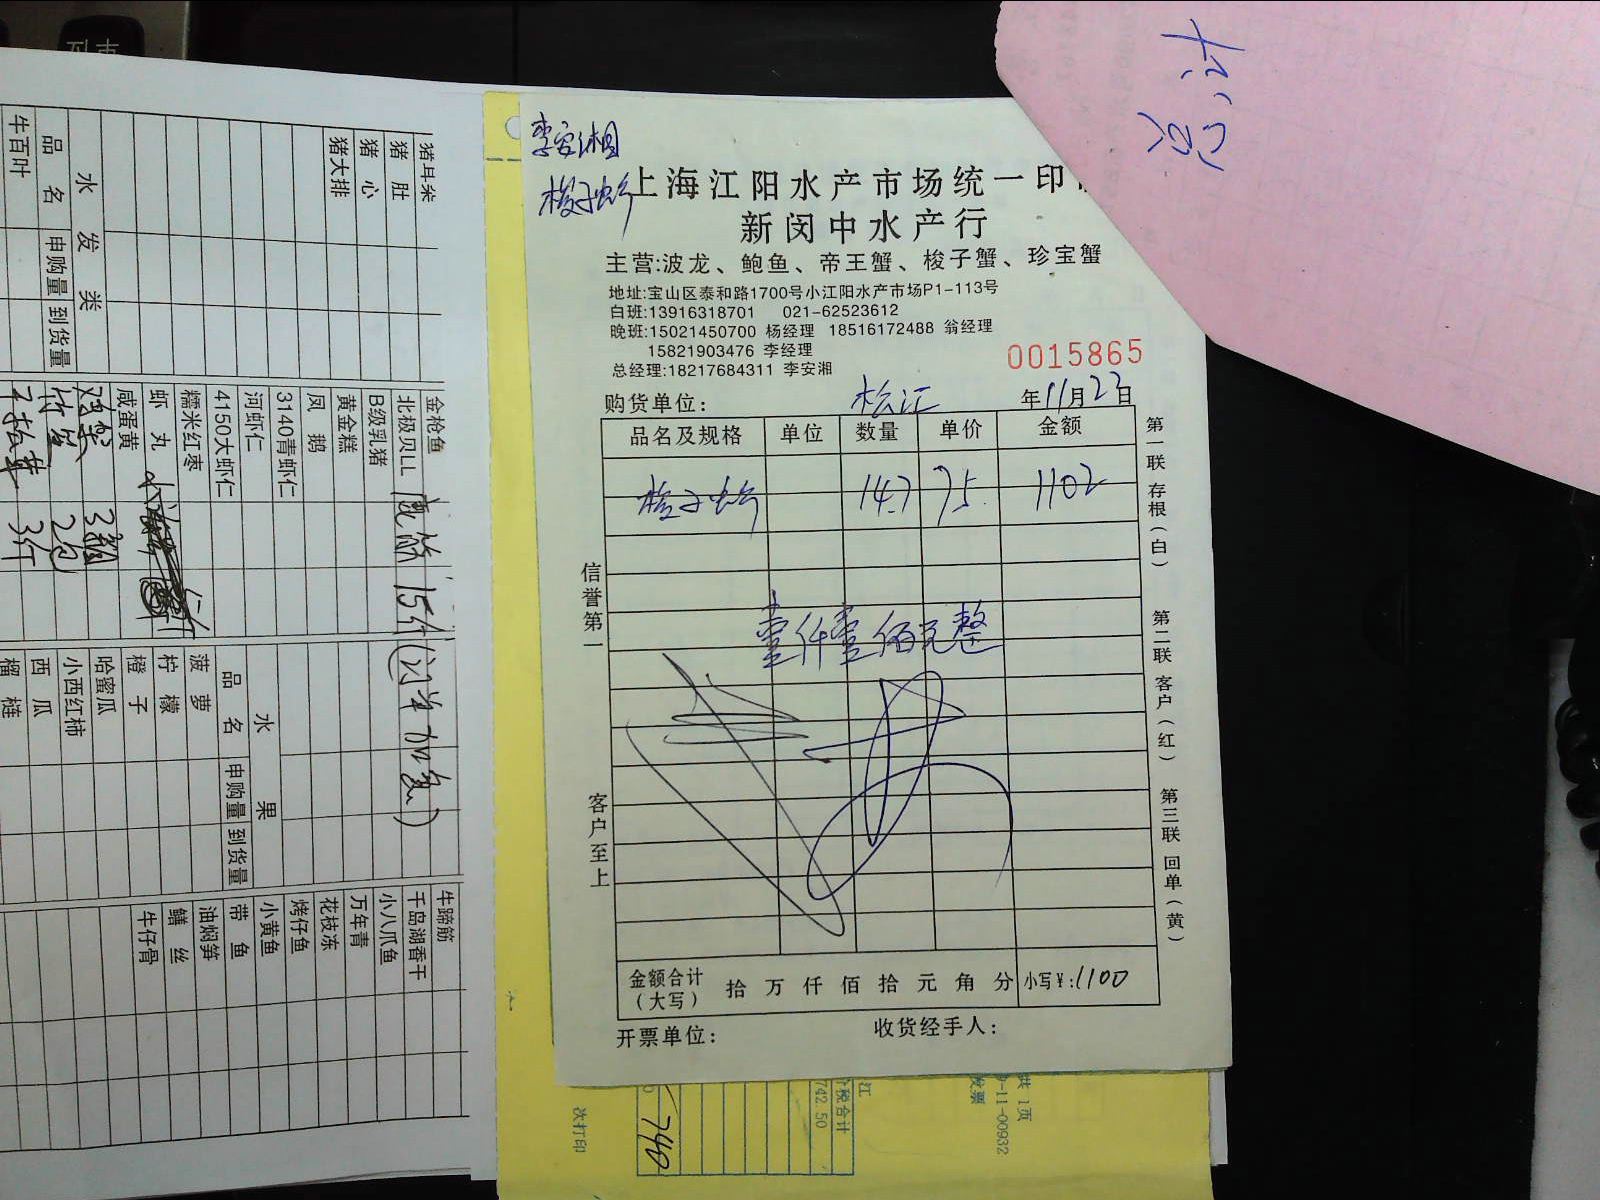 李安湘
梭子蟹
上海江阳水产市场统一印
新闵中水产行
主营:波龙、鲍鱼、帝王蟹、梭子蟹、珍宝蟹
地址:宝山区泰和路1700号小江阳水产市场P1-113号
白班:13916318701 021-62523612
晚班:15021450700 杨经理 18516172488 翁经理
15821903476 李经理
总经理:18217684311 李安湘
0015865
购货单位: 松江 年11月23日
品名及规格 单位 数量 单价 金额
梭子蟹 14.7 75. 1102
壹仟壹佰元整
金额合计(大写) 拾 万 仟 佰 拾 元 角 分 小写¥:1100
开票单位: 收货经手人:
信誉第一
客户至上
第一联 存根(白)
第二联 客户(红)
第三联 回单(黄)
猪耳朵
猪肚
猪心
猪大排
水发类
品名 申购量 到货量
牛百叶
金枪鱼
北极贝LL
B级乳猪
黄金糕
凤鹅
3140青虾仁
河虾仁
4150大虾仁
糯米红枣
虾丸
咸蛋黄
3斤
2包
水果
品名 申购量 到货量
菠萝
柠檬
橙子
哈蜜瓜
小西红柿
西瓜
榴梿
牛蹄筋
千岛湖香干
小八爪鱼
万年青
花枝冻
烤仔鱼
小黄鱼
带鱼
油焖笋
鳝丝
牛仔骨
共 1页
0-11-00932
发票
江
价税合计
742.50
740
次打印